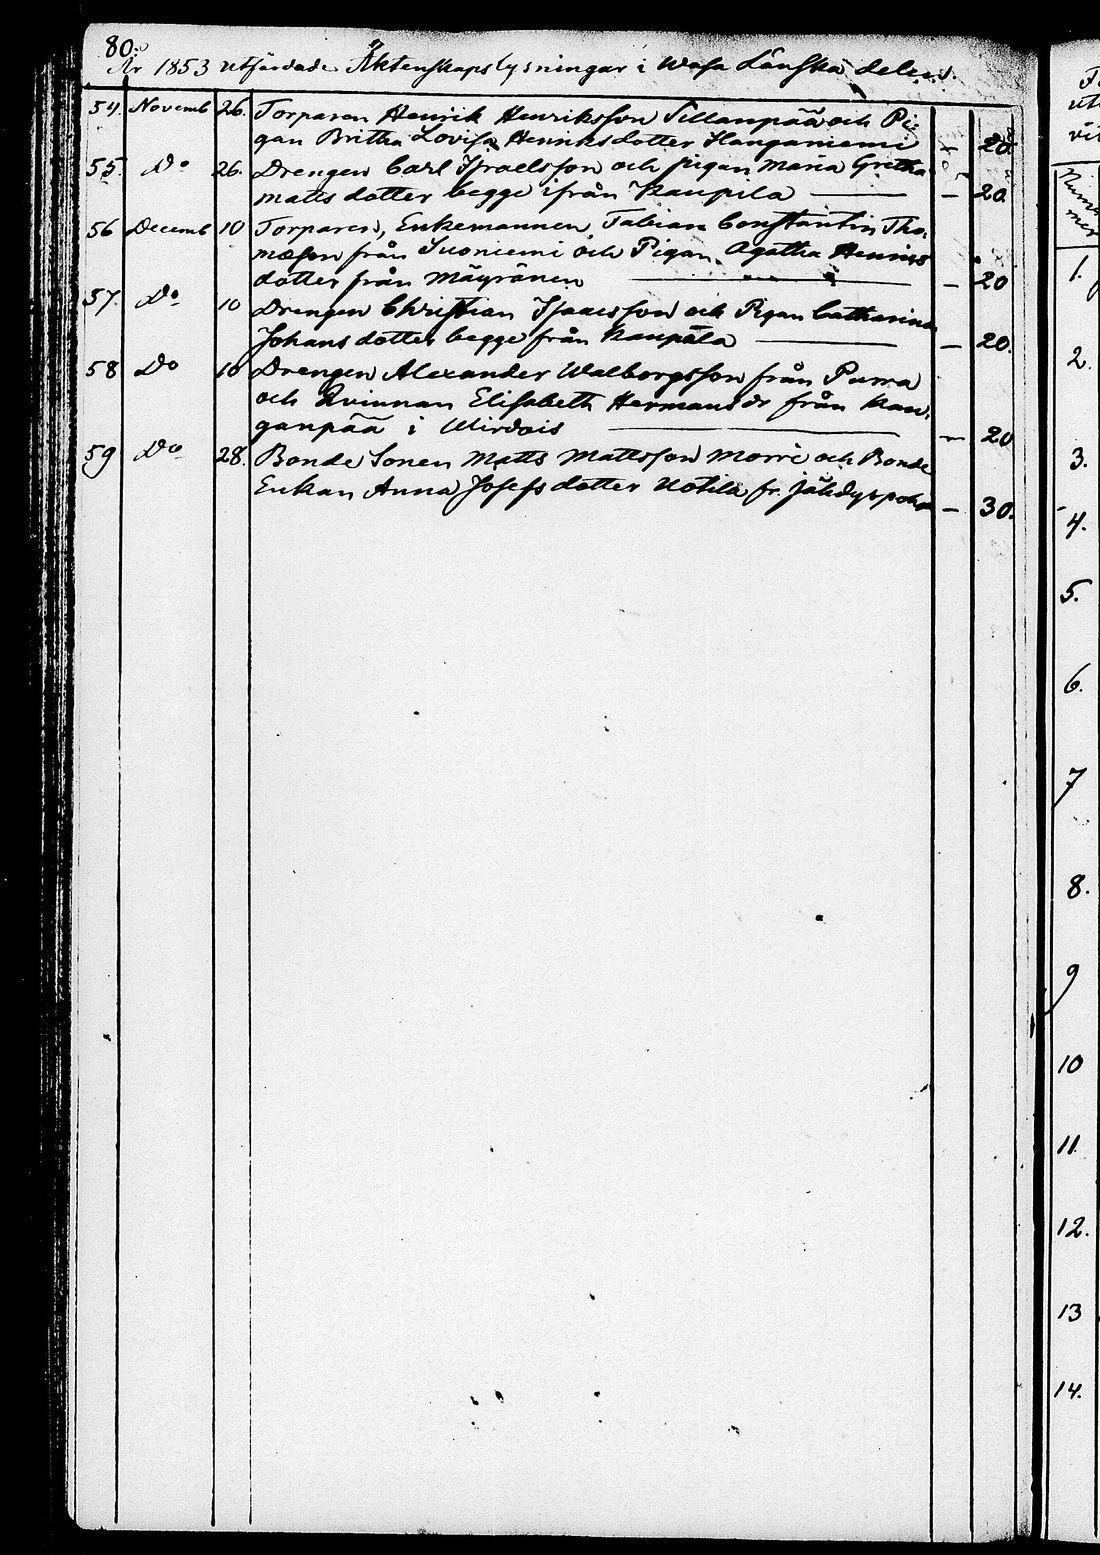 80.
År 1853 utfärdade Äktenskapslysningar i Wasa Länska delen.
54. Novemb 26. Torparen Henrik Henriksson Sillanpää och Pi-
gan Britha Lovisa Henriksdotter Hanganiemi - 20.
55. Do 26. Drengen Carl Israelsson och pigan Maria Gretha
matts dotter begge ifrån Kaupila - 20.
56 Decemb 10 Torparen, Enkemannen, Fabian Constantin Tho-
masson från Suoniemi och Pigan Agatha Henriks
dotter från Mäyränen - 20
57. Do 10 Drengen Christian Isaacsson och Pigan Catharina
Johans dotter begge från Kaupila - 20.
58 Do 10 Drengen Alexander Walborgsson från Purra
och Kvinnan Elisabeth Hermans dr från Kan-
ganpää i Wirdois - 20
59 Do 28. Bonde Sonen Matts Mattsson Morri och Bonde
Enkan Anna Josefs dotter Uotila fr. - 30.
1.
2.
3.
4.
5.
6.
7
8.
9
10
11.
12.
13
14.